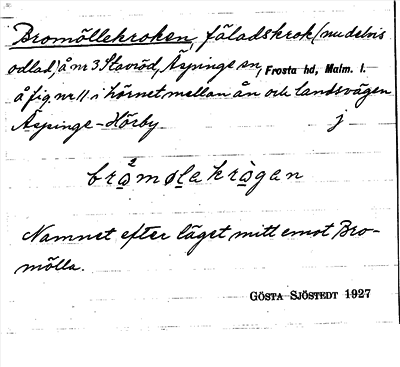 Bromöllekroken, fäladskrok (nu delvis
odlad) å nr 3 Stavröd, Äspinge sn, Frosta hd, Malm. l.
å fig. nr 11 i hörnet mellan ån och landsvägen
Äspinge - Hörby j
Namnet efter läget mitt emot Bro-
mölla.
GÖSTA SJÖSTEDT 1927